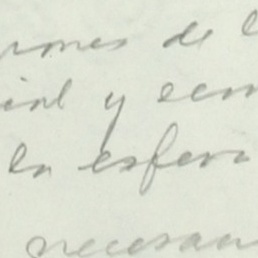 iones de l
cial y econ
la esfera
necesari